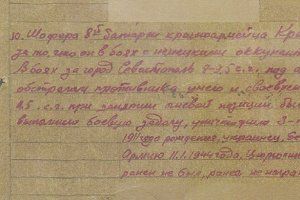 10. Шофера 8й батареи красноармейца Кр
за то, что он в боях с немецкими оккупан
В боях за город Севастополь 7-9.5 с.г. под
обстрелом противника умело и своевре
9.5. с.г. при занятии огневой позиции бы
выполнил боевую задачу, уничтожив 3-
1911 года рождения, украинец, бе
Армию 11.1.1944 года,
ранен не был, ранее не награ